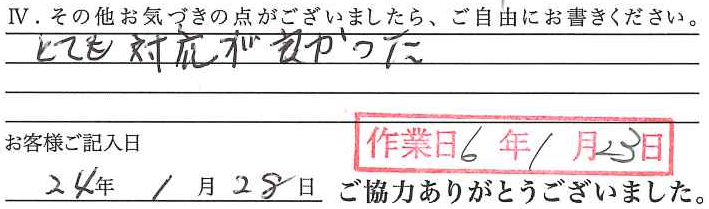 Ⅳ．その他お気づきの点がございましたら、ご自由にお書きください。
とても対応が良かった
お客様ご記入日
作業日6年1月23日
24年1月28日
ご協力ありがとうございました。